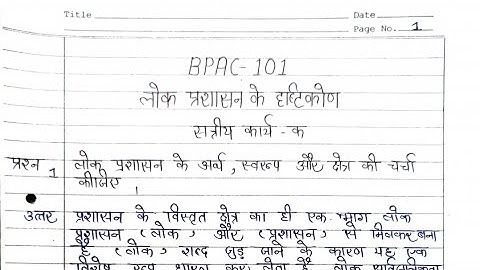 Title Date
Page No. 1
BPAC-101
लोक प्रशासन के दृष्टिकोण
सत्रीय कार्य - क
प्रश्न 1 लोक प्रशासन के अर्थ, स्वरूप और क्षेत्र की चर्चा
कीजिए ।
उत्तर प्रशासन के विस्तृत क्षेत्र का ही एक भाग लोक
प्रशासन (लोक, और (प्रशासन) से मिलकर बना
है (लोक, शब्द जुड़ जाने के कारण यह एक
विशेष रूप धारण कर लेता है